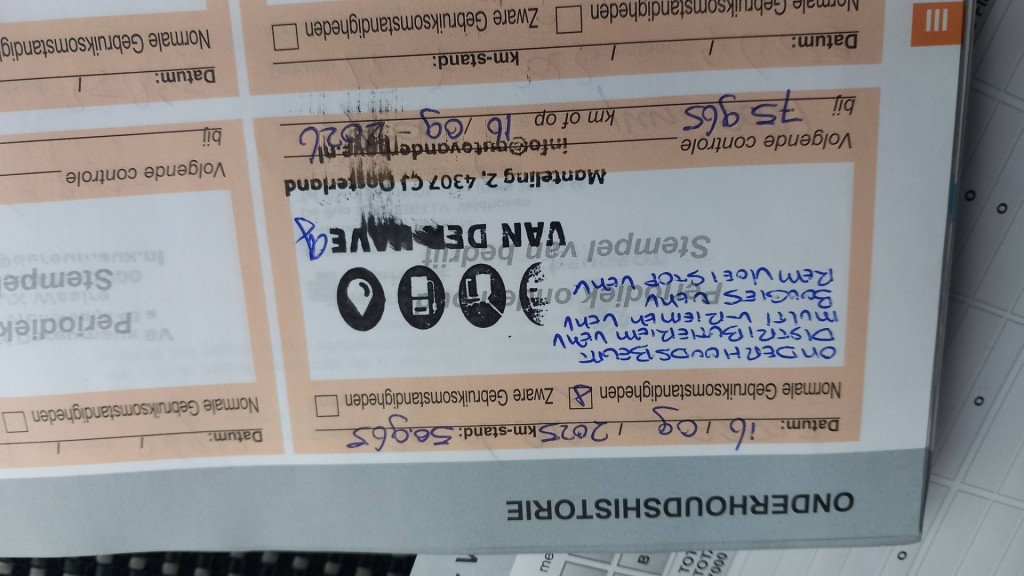 ONDERHOUDSHISTORIE
Datum: 16 / 09 / 2025 km-stand: 50965
Normale Gebruiksomstandigheden Zware Gebruiksomstandigheden
ONDERHOUDSBEURT
DISTRIBUTIERIEM VERV
MULTI V-RIEMEN VERV
BOUGIES VERV
REMVLOEISTOF VERV
Periodiek
Stempel van bedrijf
VAN DER HAVE
Manteling 2, 4307 CJ Oosterland
info@autovanderhave.nl
Volgende controle
bij 75965 km of op 16 / 09 2026
Datum: / / km-stand:
Normale Gebruiksomstandigheden Zware Gebruiksomstandigheden
III
Datum: / /
Normale Gebruiksomstandigheden
Periodiek
Stempel
Volgende controle
bij
Datum: /
Normale